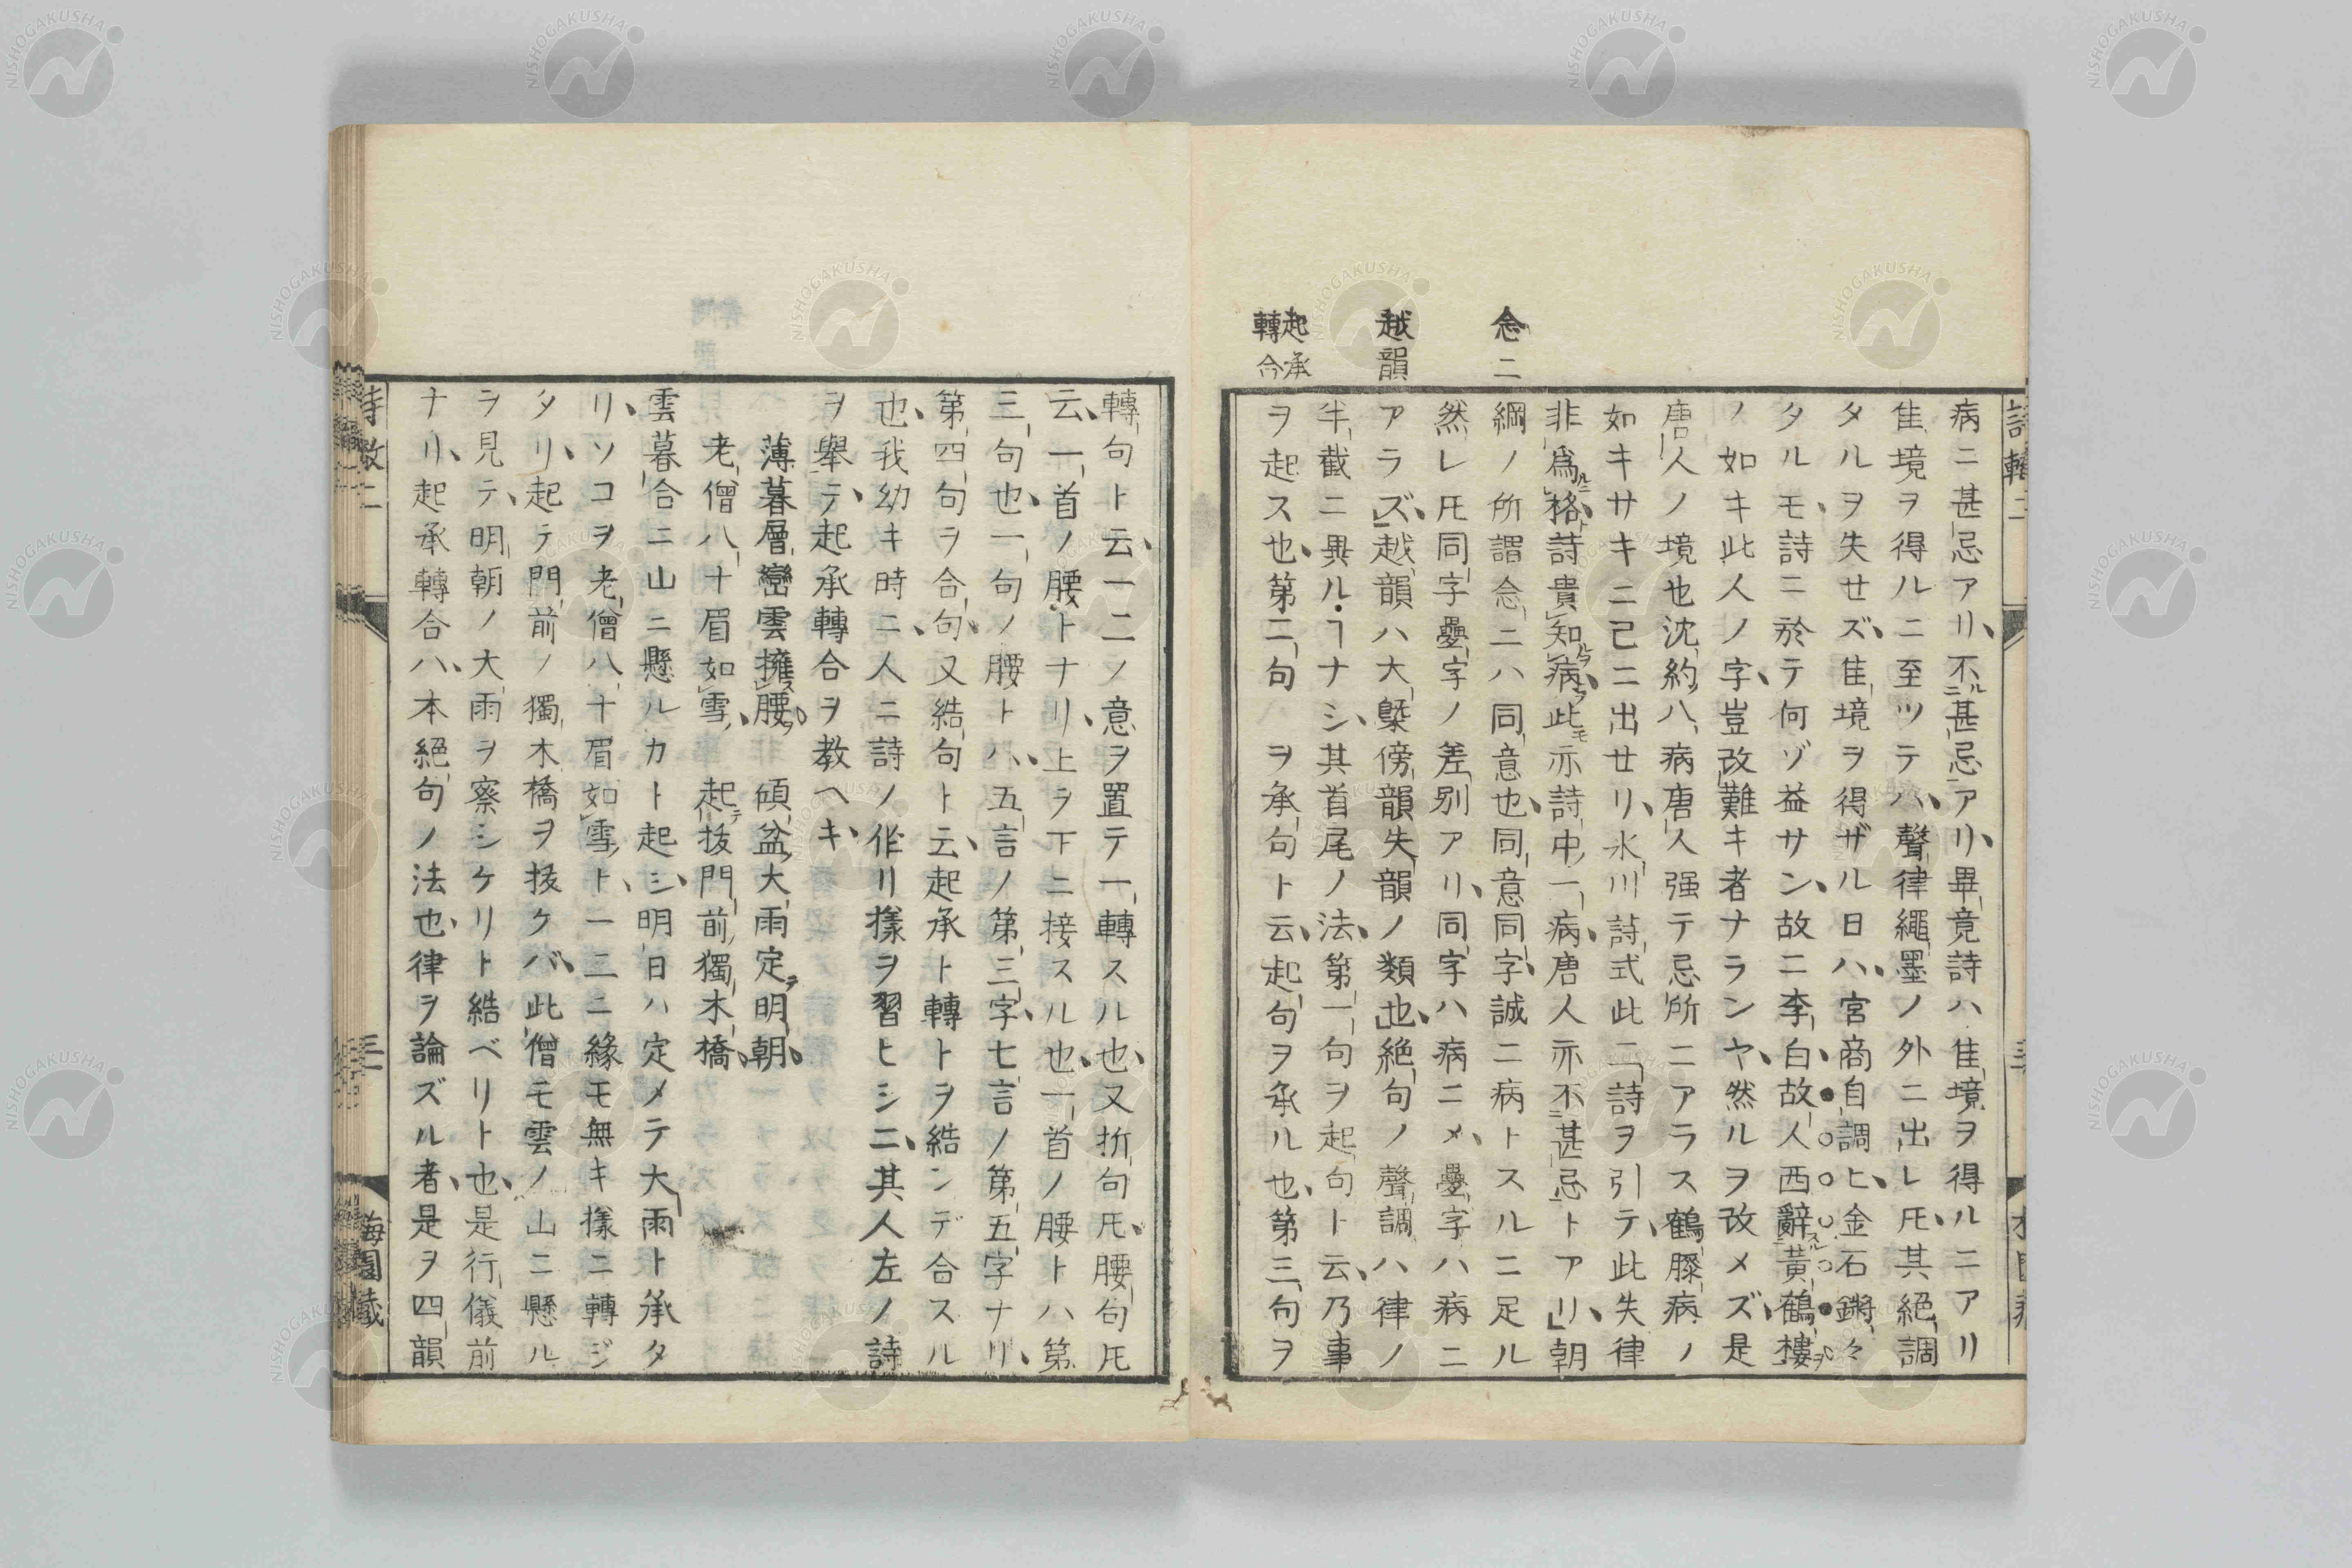 病ニ甚忌アリ、不甚忌アリ、畢竟詩ハ佳境ヲ得ルニアリ
佳境ヲ得ルニ至ツテハ、聲律繩墨ノ外ニ出レ𪜈、其絕調
タルヲ失セズ、佳境ヲ得ザル日ハ、宮商自調ヒ、金石鏘々
タルモ、詩ニ於テ何ゾ益サン、故ニ李白、故人西辭黃鶴樓
ノ如キ此人ノ字、豈改難キ者ナランヤ、然ルヲ改メズ、是
唐人ノ境也沈約八病唐人强テ忌所ニアラス鶴膝病ノ
如キサキニ已ニ出セリ、氷川詩式此二詩ヲ引テ、此失律
非爲格、詩貴知病、此亦詩中一病、唐人亦不甚忌トアリ、朝
綱ノ所謂念二ハ同意也、同意同字、誠ニ病トスルニ足ル
然レ𪜈同字疊字ノ差別アリ、同字ハ病ニメ、疊字ハ病ニ
アラズ、越韻ハ大槩傍韻失韻ノ類也、絕句ノ聲調ハ律ノ
半截ニ異ルヿナシ、其首尾ノ法、第一句ヲ起句ト云、乃事
ヲ起ス也、第二句 ヲ承句ト云、起句ヲ承ル也、第三句ヲ
念二
越韻
起承
轉合
轉句ト云、一二ノ意ヲ置テ一轉スル也、又折句𪜈、腰句𪜈
云、一首ノ腰トナリ、上ヲ下ニ接スル也、一首ノ腰トハ第
三句也、一句ノ腰トハ、五言ノ第三字、七言ノ第五字ナリ、
第四句ヲ合句、又結句ト云、起承ト轉トヲ結ンデ合スル
也、我幼キ時ニ、人ニ詩ノ作リ樣ヲ習ヒシニ、其人左ノ詩
ヲ舉テ、起承轉合ヲ教ヘキ、
薄暮層巒雲擁腰 傾盆大雨定明朝、
老僧八十眉如雪、 起拔門前獨木橋、
雲暮合ニ山ニ懸ルカト起シ、明日ハ定メテ大雨ト承タ
リ、ソコヲ老僧八十眉如雪、ト、一二ニ緣モ無キ樣ニ轉ジ
タリ、起テ門前ノ獨木橋ヲ拔ケバ、此僧モ雲ノ山ニ懸ル
ヲ見テ、明朝ノ大雨ヲ察シケリト結ベリト也、是行儀前
ナリ、起承轉合ハ、本絕句ノ法也、律ヲ論ズル者、是ヲ四韻